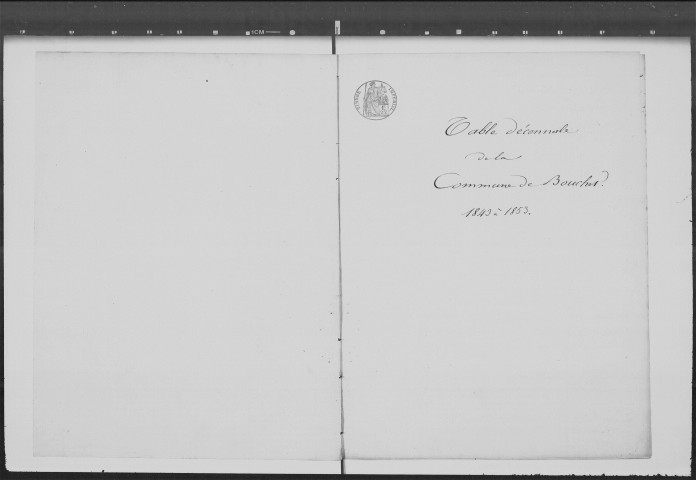 Table décennale
de la
Commune de Bouchet
1843 à 1853.
1CM